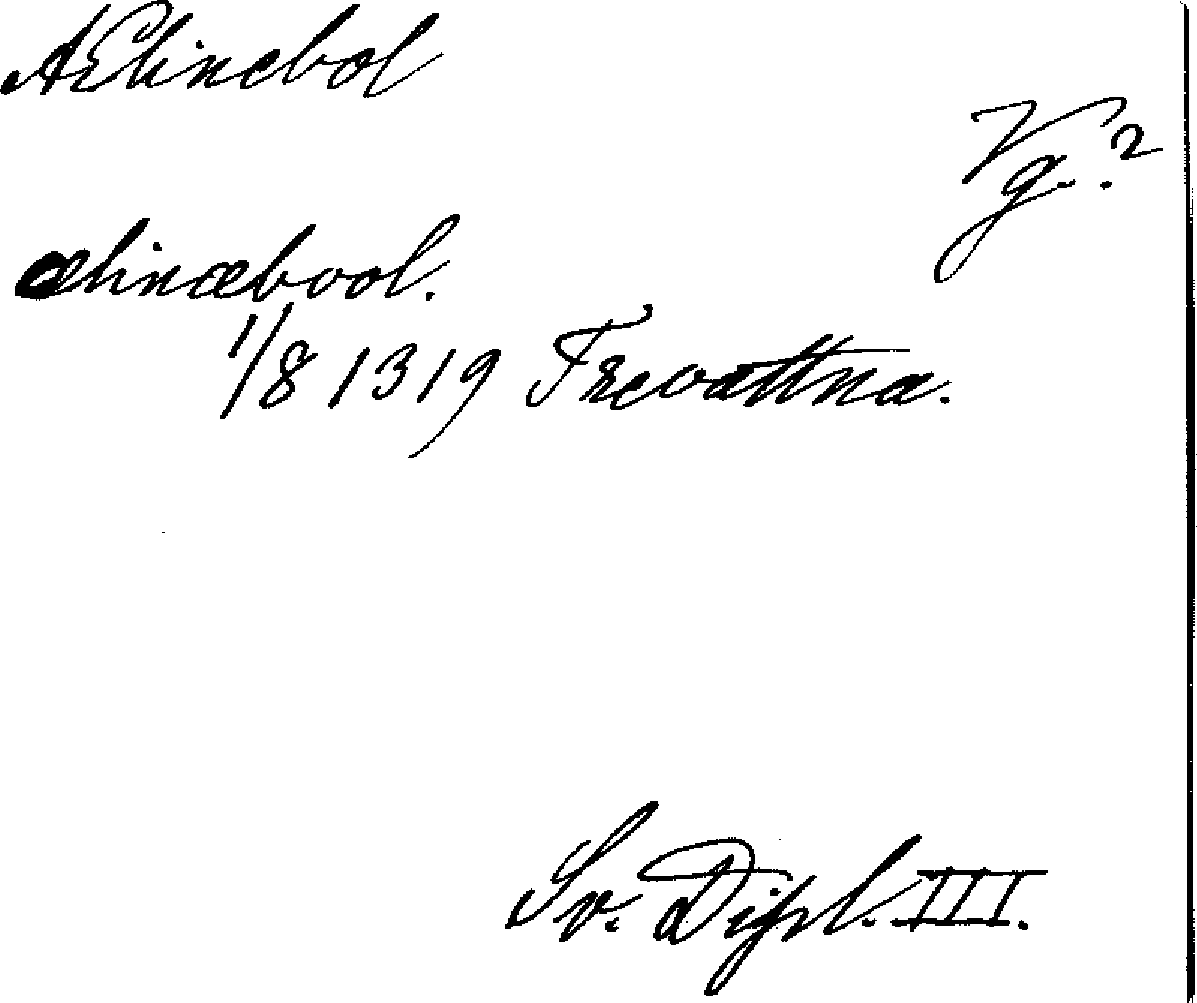 AElinebol
Vg.?
ælinæbool.
1/8 1319 Trevattna.
Sv. Dipl. III.